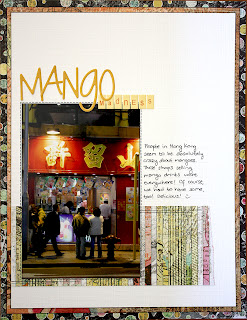 MANGO
MADNESS
許留山
People in Hong Kong
seem to be absolutely
crazy about mangoes.
These shops selling
mango drinks were
everywhere! Of course
we had to have some,
too! Delicious!